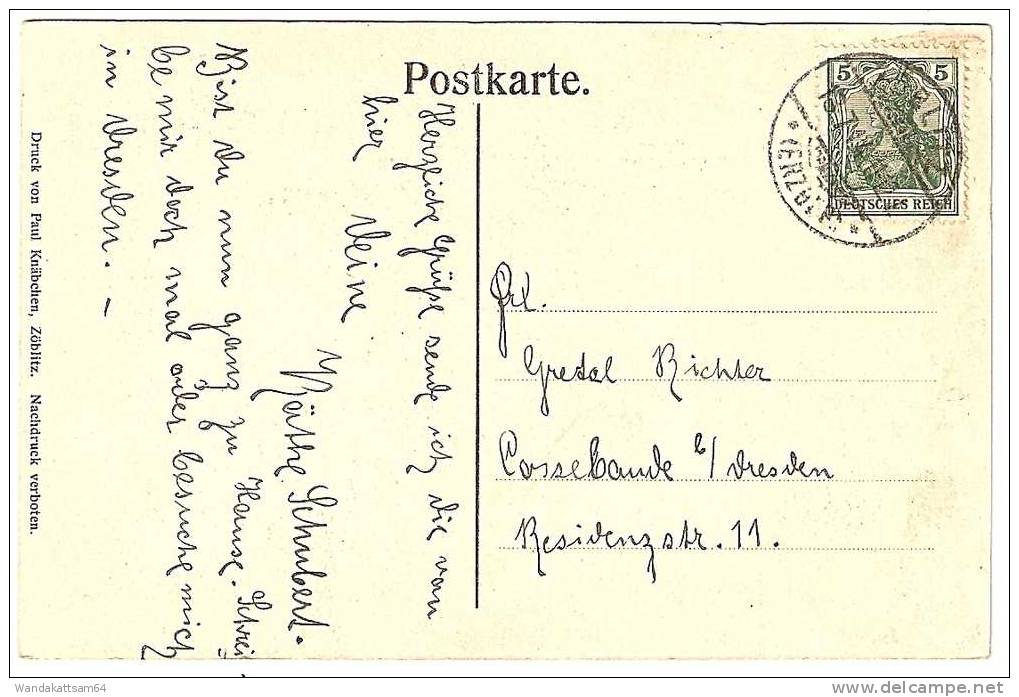 Postkarte.
5 5
DEUTSCHES REICH
* (ERZGEB.) *
Herzliche Grüße sende ich Dir von
hier Deine
Käthe Schubert.
Bist du nun ganz zu Hause. Schrei
be mir doch mal oder besuche mich
in Dresden. –
Frl.
Gretel Richter
Cossebaude b/ Dresden
Residenzstr. 11.
Druck von Paul Knäbchen, Zöblitz. Nachdruck verboten.
Wandakattsam64
delcampe.net